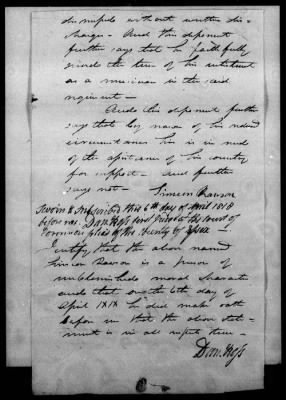 dismissed without written dis-
charge - And this deponent
further says that he faithfully
served the term of his inlistment
as a musician in the said
regiment -
And this deponent further
says that by reason of his reduced
circumstances he is in need
of the assistance of his country
for support - and further
says not - Simeon
Sworn & Subscribed this 6th day of April 1818
before me. Dan Kefs first Judge of the Court of
Common Pleas of the County of Essex
I certify that the above named
Simeon is a person of
unblemished moral character
and that on the 6th day of
April 1818 he did make oath
before me that the above state-
ment is in all respects true -